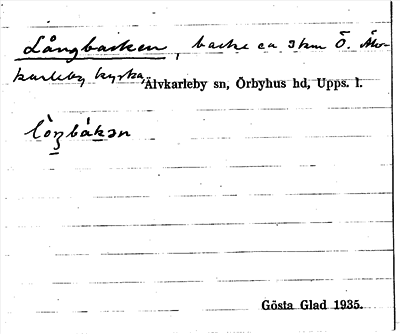 Långbacken, backe ca 3 km Ö. Älv-
karleby kyrka, Älvkarleby sn, Örbyhus hd, Upps. l.
lòŋbákən
Gösta Glad 1935.